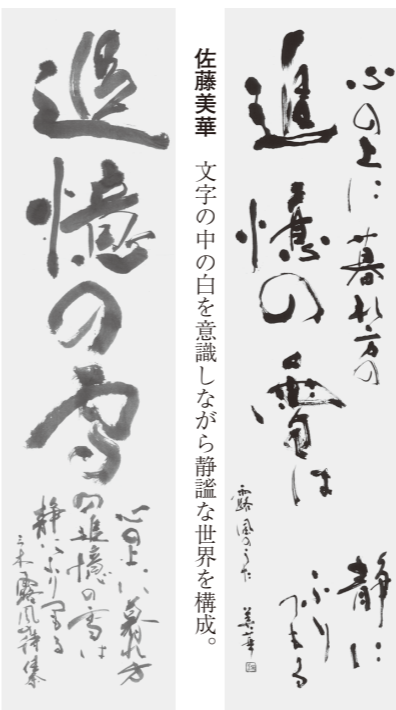 心の上に暮れ方の
追憶の雪は
静に
ふり
つもる
露風のうた 美華
佐藤美華 文字の中の白を意識しながら静謐な世界を構成。
追憶の雪
心の上に暮れ方
の追憶の雪は
静にふりつもる
三木露風詩